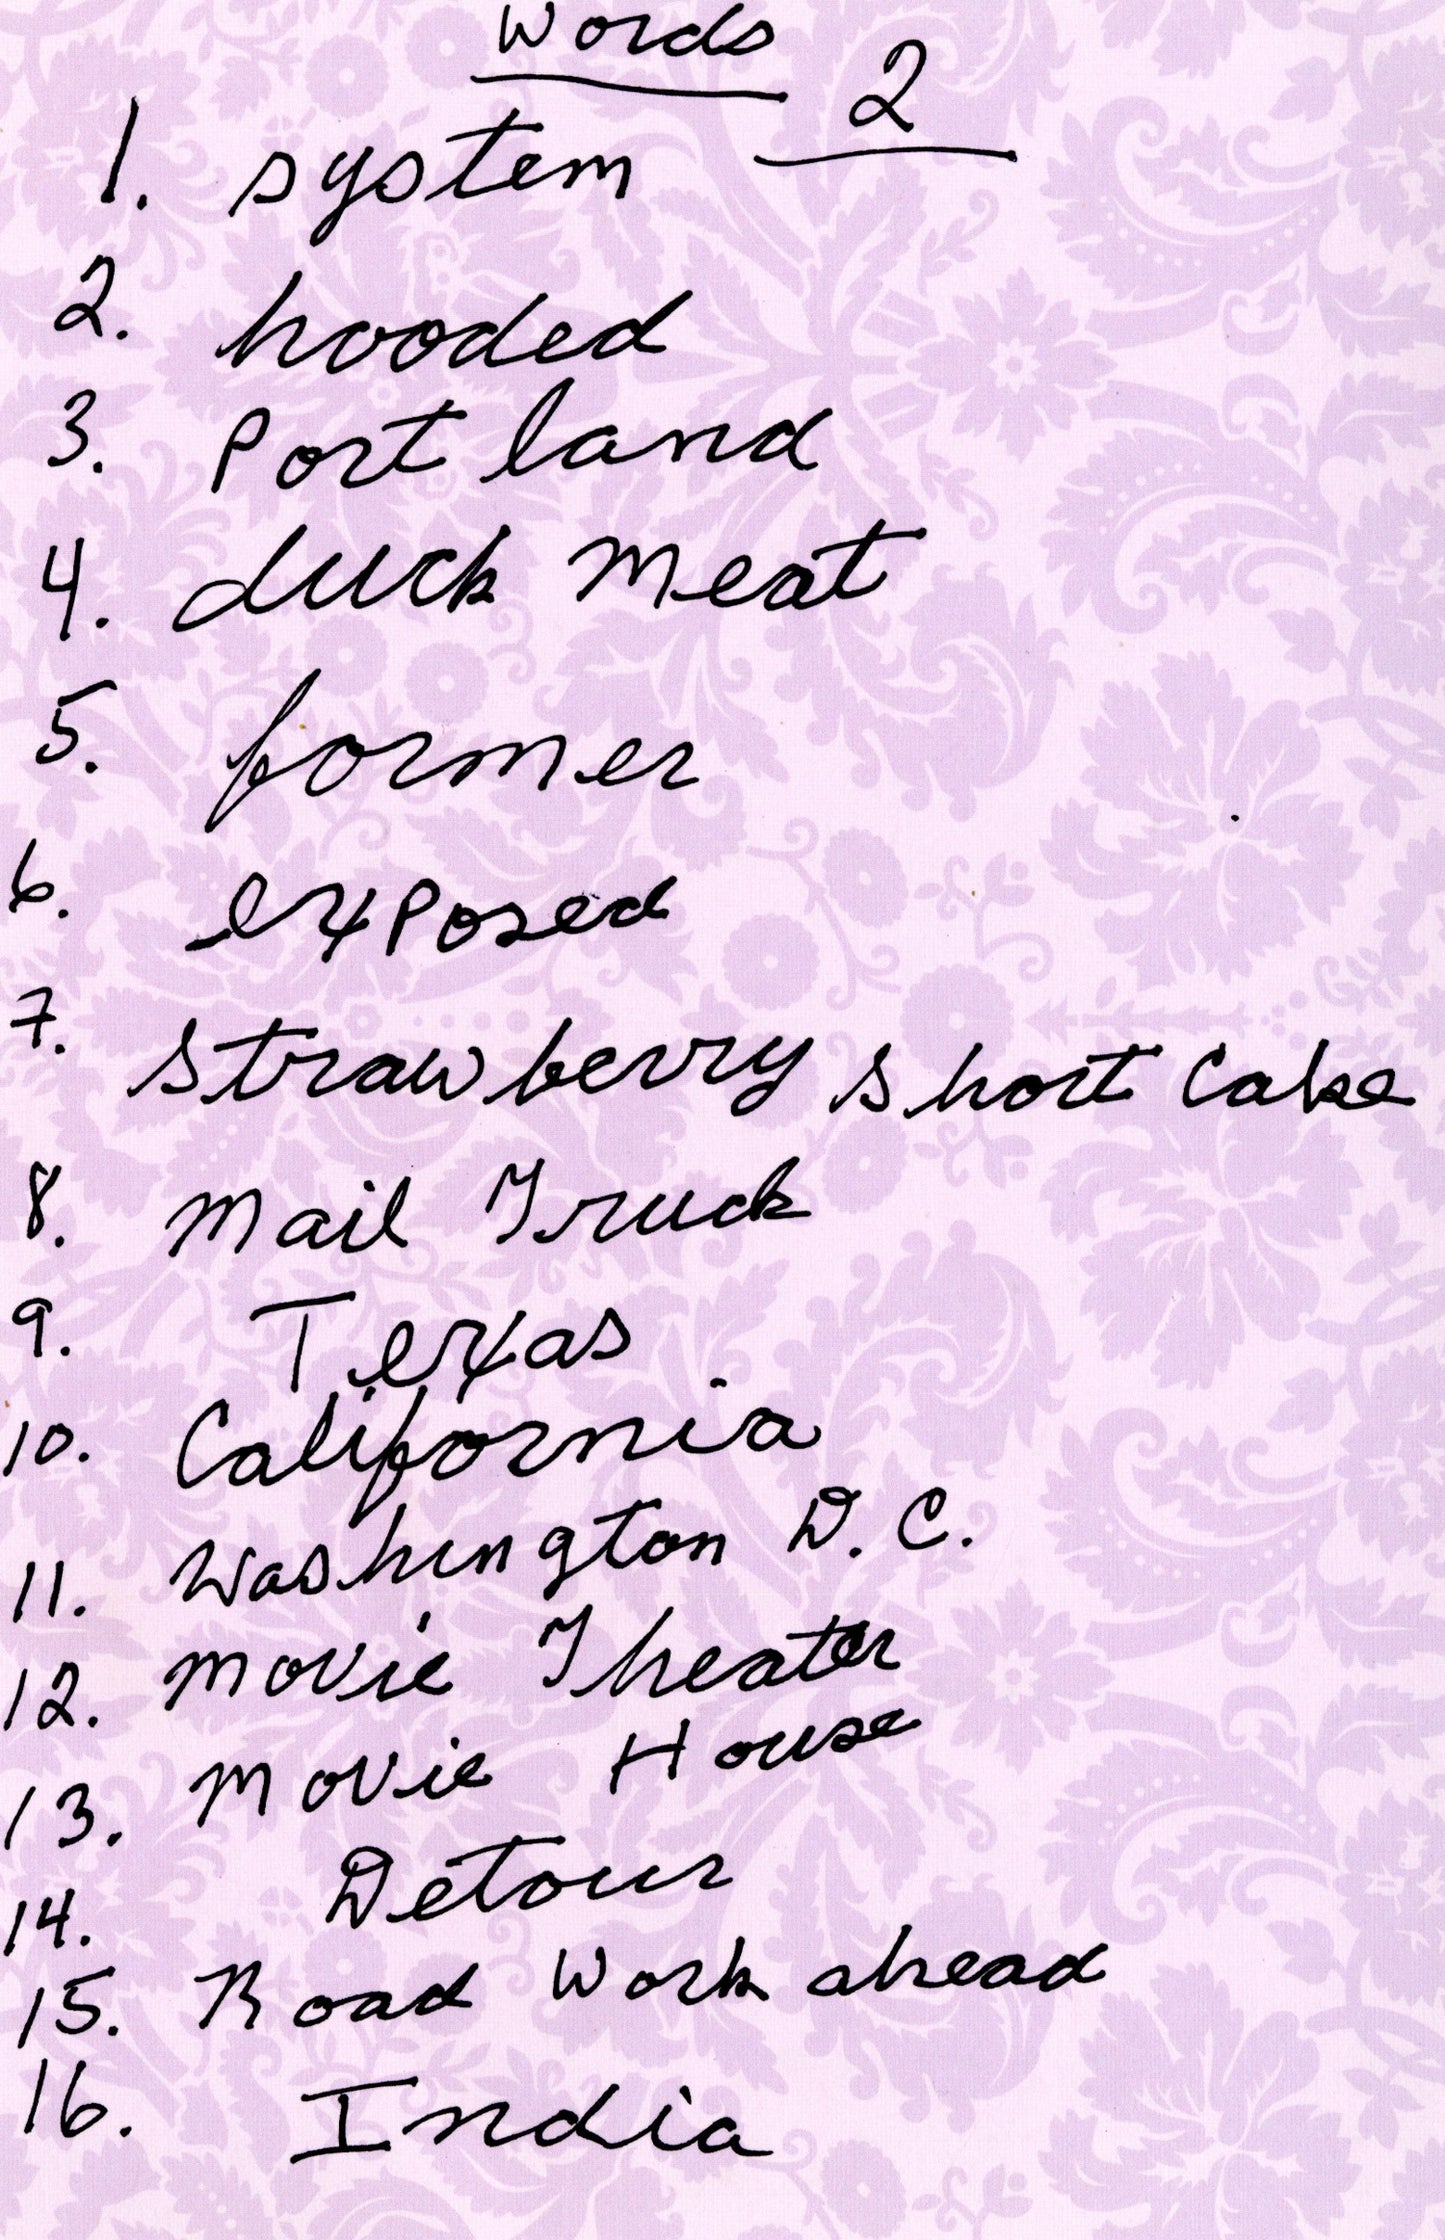 Words
2
1. system
2. hooded
3. Portland
4. duck meat
5. former
6. exposed
7. strawberry short cake
8. Mail Truck
9. Texas
10. California
11. Washington D.C.
12. Movie Theater
13. Movie House
14. Detour
15. Road Work ahead
16. India